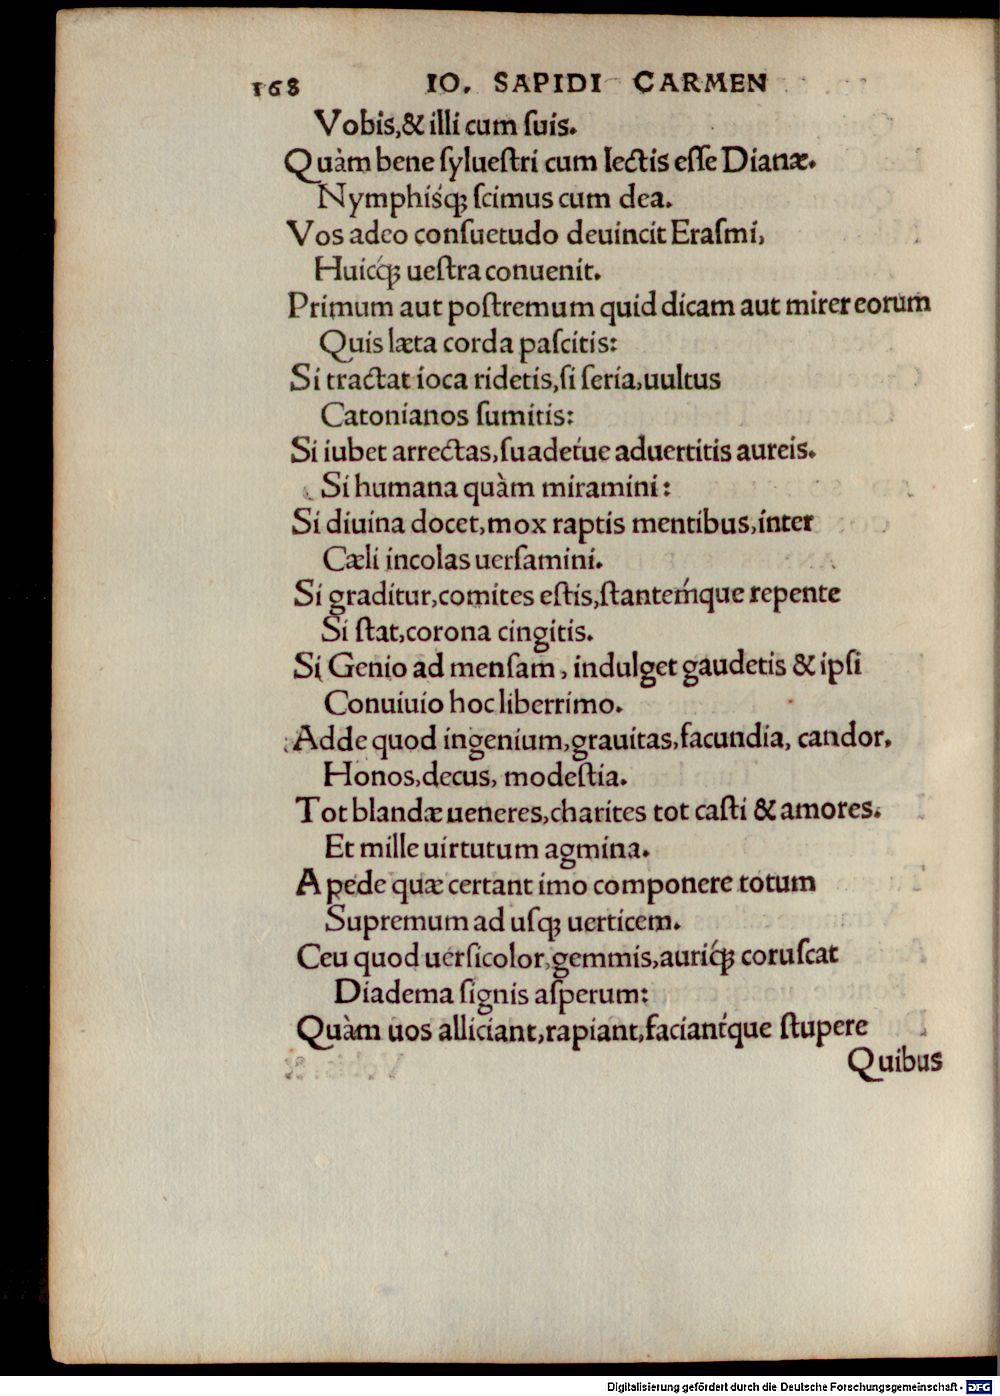 168 IO. SAPIDI CARMEN
Vobis,& illi cum ſuis.
Quàm bene ſylueſtri cum lectis eſſe Dianæ.
Nymphiśqꝫ ſcimus cum dea.
Vos adeo conſuetudo deuincit Eraſmi,
Huicq́ꝫ ueſtra conuenit.
Primum aut poſtremum quid dicam aut mirer eorum
Quis læta corda paſcitis:
Si tractat ioca ridetis,ſi ſeria,uultus
Catonianos ſumitis:
Si iubet arrectas,ſuadet́ue aduertitis aureis.
Si humana quàm miramini:
Si diuina docet,mox raptis mentibus,inter
Cæli incolas uerſamini.
Si graditur,comites eſtis,ſtanteḿque repente
Si ſtat,corona cingitis.
Si Genio ad menſam, indulget gaudetis & ipſi
Conuiuio hoc liberrimo.
Adde quod ingenium,grauitas,facundia, candor,
Honos,decus, modeſtia.
Tot blandæ ueneres,charites tot caſti & amores.
Et mille uirtutum agmina.
A pede quæ certant imo componere totum
Supremum ad uſqꝫ uerticem.
Ceu quod uerſicolor,gemmis,auriq́ꝫ coruſcat
Diadema ſignis aſperum:
Quàm uos alliciant,rapiant,faciant́que ſtupere
Quibus
Digitalisierung gefördert durch die Deutsche Forschungsgemeinschaft - DFG